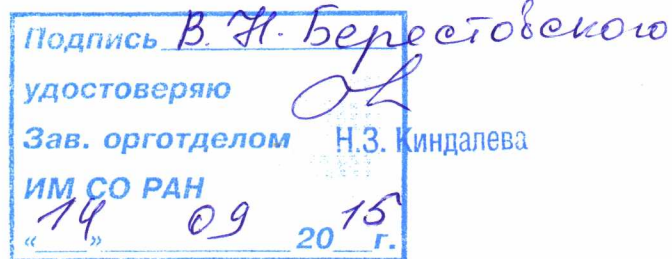 Подпись В. Н. Берестовского
удостоверяю
Зав. орготделом Н.З. Киндалева
ИМ СО РАН
«14» 09 2015 г.